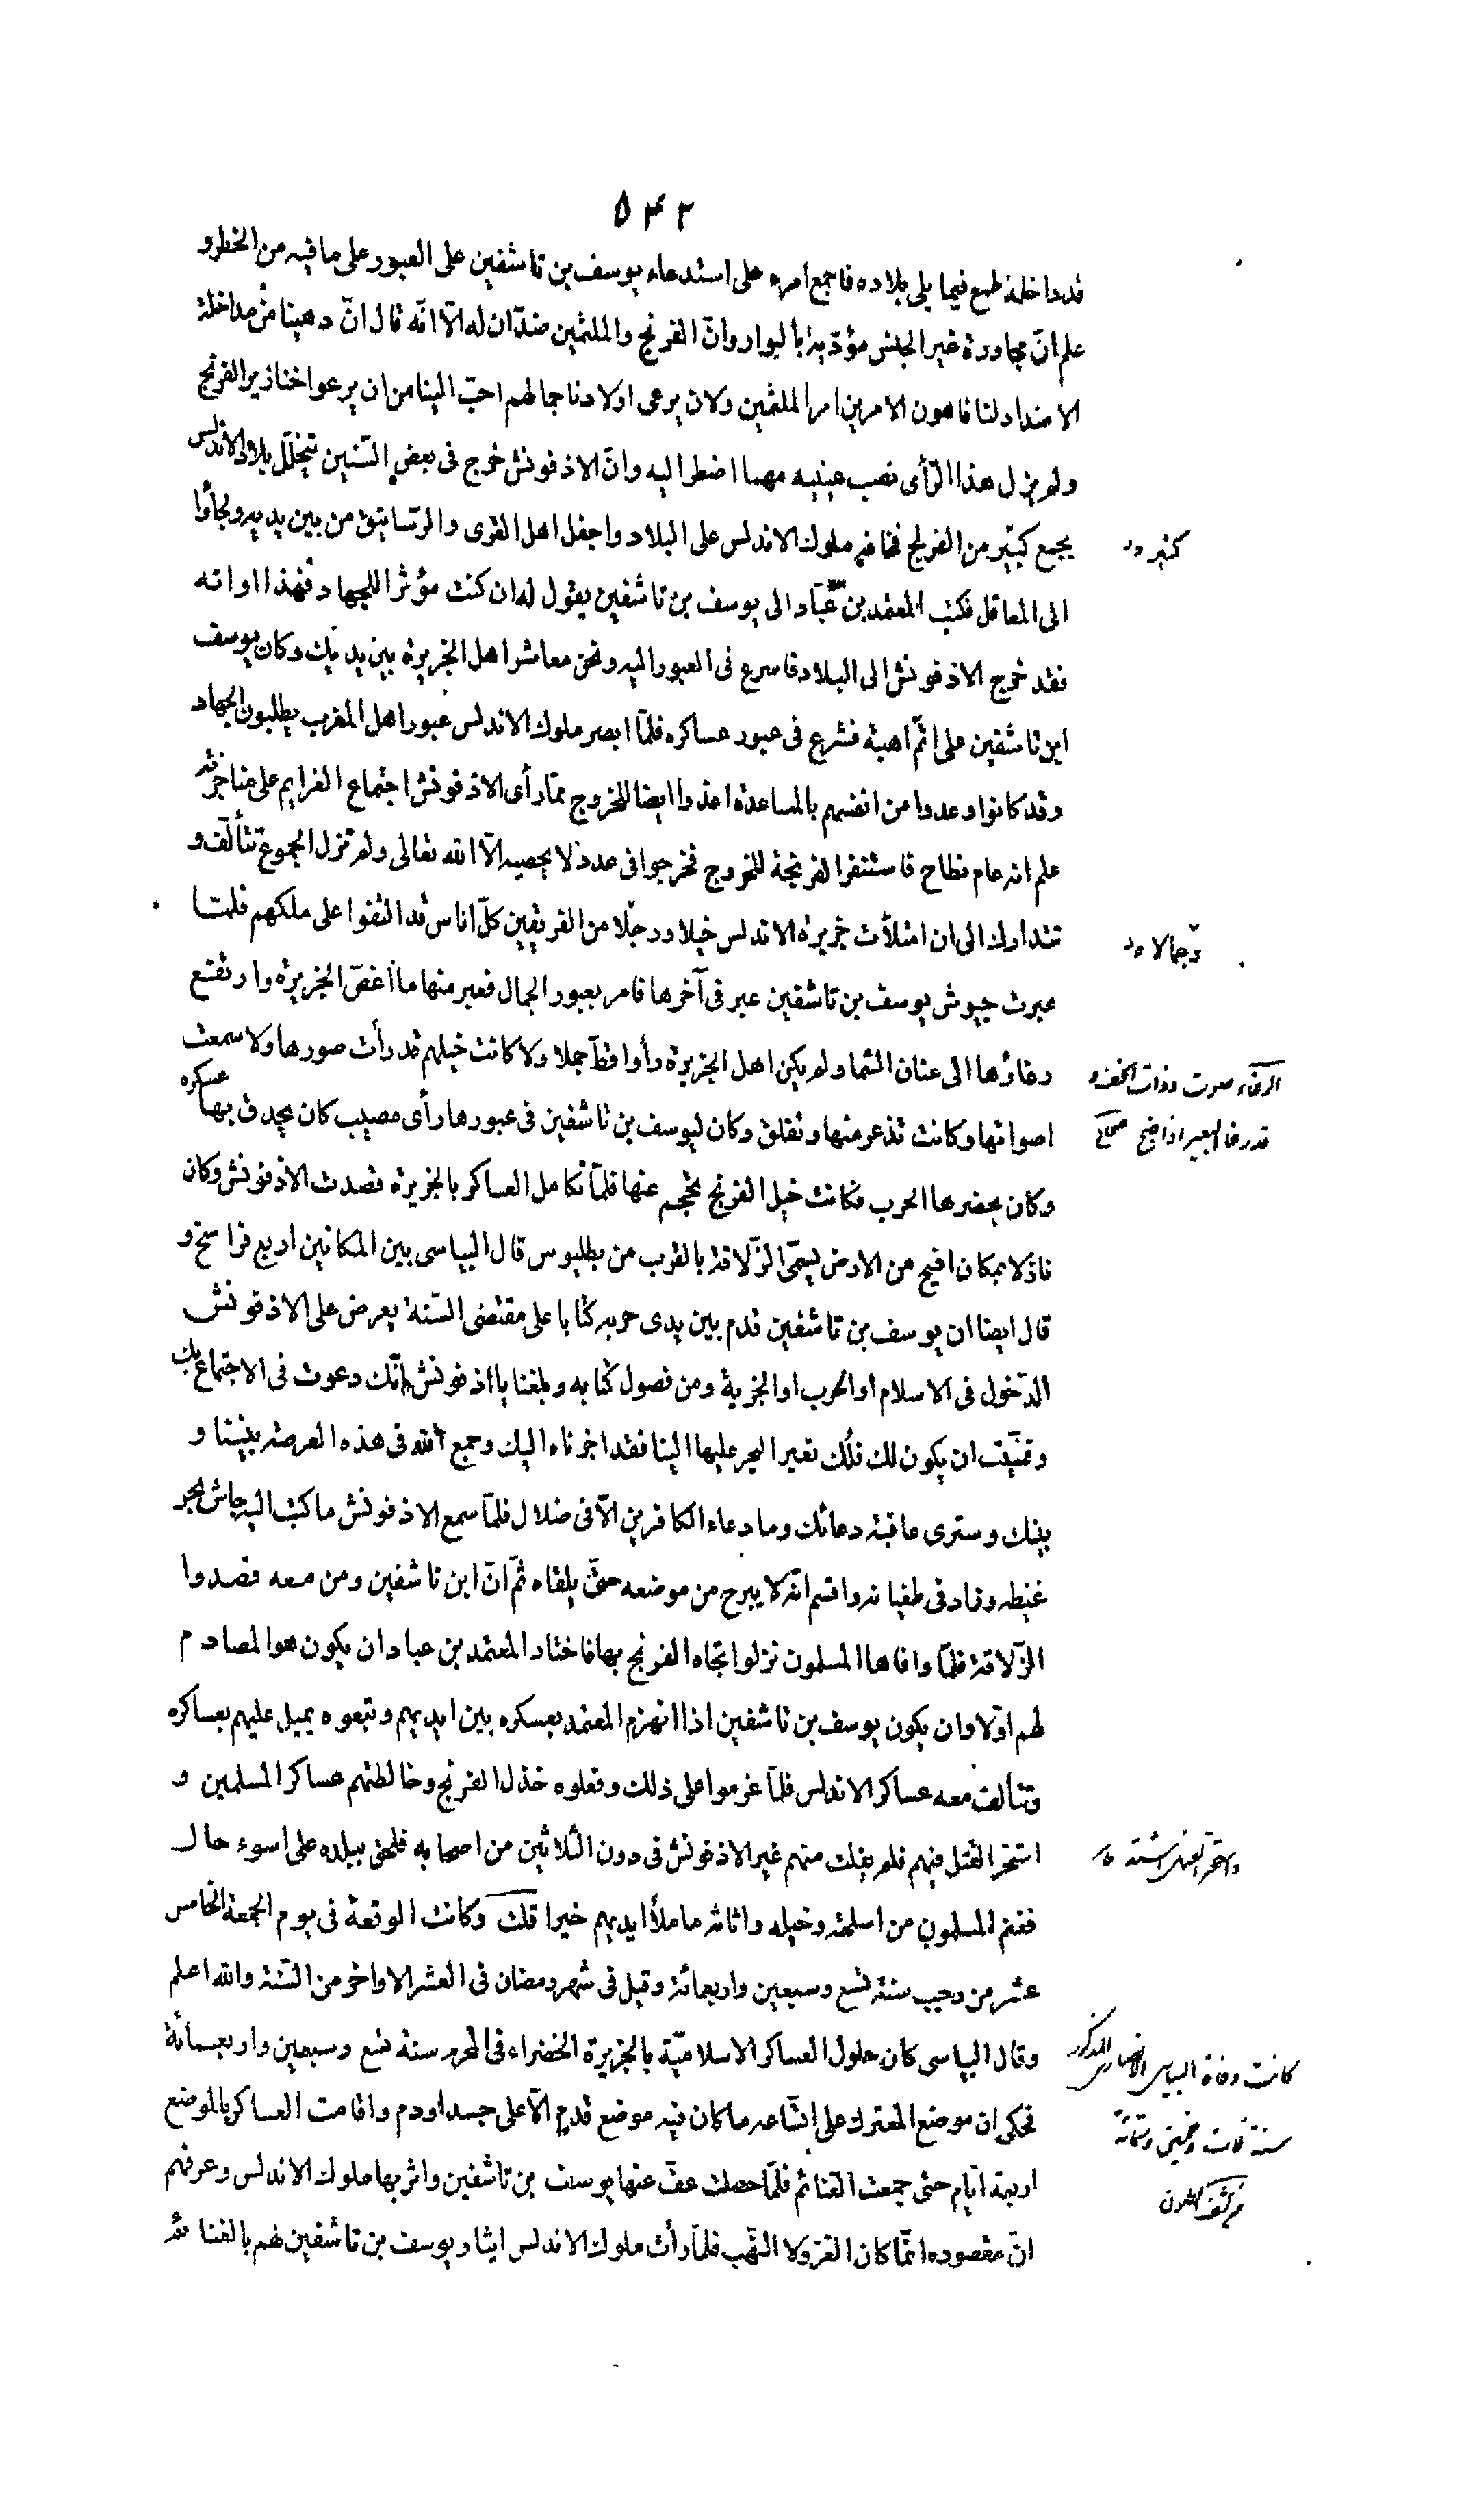 ۵۴۲
قد داخله طمع فيما يلى بلاده فاجمع امره على استدعاء يوسف بن تاشفين على العبور على ما فيه من الخطر و
علم انّ مجاورة غير الجنس مؤذية بالبوار وانّ الفرنج والملثمين ضدّان له الّا انّه قال انّ دهينا من مداخلة
الاضداد لنا فاهون الامرين امر الملثمين ولان يرعى اولادنا جمالهم احبّ الينا من ان يرعوا خنازير الفرنج
ولم يزل هذا الرّأى نصب عينيه مهما اضطر اليه وانّ الاذفونش خرج فى بعض السّنين يتخلّل بلاد الاندلس
بجمع كبير من الفرنج فخافه ملوك الاندلس على البلاد واجفل اهل القرى والرّساتيق من بين يديه ولجأوا
كثير
الى المعاقل فكتب المعتمد بن عبّاد الى يوسف بن تاشفين يقول له ان كنت مؤثرا للجهاد فهذا اوانه
فقد خرج الاذفونش الى البلاد فاسرع فى العبور اليه ونحن معاشر اهل الجزيرة بين يديك وكان يوسف
ابن تاشفين على اتمّ اهبة فشرع فى عبور عساكره فلمّا ابصر ملوك الاندلس عبور اهل المغرب يطلبون الجهاد
وقد كانوا وعدوا من انفسهم بالمساعدة اعدوا ايضا للخروج فلمّا رأى الاذفونش اجتماع العزايم على مناجزته
علم انه عام نطاح فاستنفر الفرنجة للخروج فخرجوا فى عدد لا يحصيه الّا الله تعالى ولم تزل الجموع تتألّف و
تتدارك الى ان امتلأت جزيرة الاندلس خيلا ورجلا من الفريقين كلّ اناس قد التفوا على ملكهم فلمّا
وّجمالا
عبرت جيوش يوسف بن تاشفين عبر فى آخرها فامر بعبور الجمال فعبر منها ما اغصّ الجزيرة وارتفع
رغاؤها الى عنان السّما ولم يكن اهل الجزيرة رأوا قطّ جملا ولا كانت خيلهم قد رأت صورها ولا سمعت
الرغاء صوت ذوات الخف و
اصواتها وكانت تذعر منها وتقلق وكان ليوسف بن تاشفين فى عبورها رأى مصيب كان يحدق بها عسكره
قد رغا البعير اذا ضج صحاح
وكان يحضرها الحرب فكانت خيل الفرنج تحجم عنها فلمّا تكامل العساكر بالجزيرة قصدت الاذفونش وكان
نازلا بمكان افيح من الارض يسمّى الزّلاقة بالقرب من بطليوس قال البياسى بين المكانين اربع فراسخ و
قال ايضا ان يوسف بن تاشفين قدم بين يدى حربه كتابا على مقتضى السّنة يعرض على الاذفونش
الدّخول فى الاسلام او الحرب او الجزية ومن فصول كتابه وبلغنا يا اذفونش انّك دعوت فى الاجتماع بك
وتمنّيت ان يكون لك فلك تعبر البحر عليها الينا فقد اجزناه اليك وجمع الله فى هذه العرصة بيننا و
بينك وسترى عاقبة دعائك وما دعاء الكافرين الّا فى ضلال فلمّا سمع الاذفونش ما كتب اليه جاش بحر
غيظه وزاد فى طغيانه واقسم انّه لا يبرح من موضعه حتّى يلقاه ثمّ انّ ابن تاشفين ومن معه قصدوا
الزّلاقة فلمّا وافاها المسلمون نزلوا تجاه الفرنج بها فاختار المعتمد بن عباد ان يكون هو المصادم
لهم اوّلا وان يكون يوسف بن تاشفين اذا انهزم المعتمد بعسكره بين ايديهم وتبعوه يميل عليهم بعساكره
وتتألف معه عساكر الاندلس فلمّا عزموا على ذلك وفعلوه خذل الفرنج وخالطتهم عساكر المسلمين و
استحرّ القتل فيهم فلم يفلت منهم غير الاذفونش فى دون الثّلاثين من اصحابه فلحق ببلده على اسوء حال
واستحر القتل اشتد
فغنم المسلمون من اسلحته وخيله واثاثه ما ملأ ايديهم خيرا قلت وكانت الوقعة فى يوم الجمعة الخامس
عشر من رجب سنة تسع وسبعين واربعمائة وقيل فى شهر رمضان فى العشر الاواخر من السّنة والله اعلم
وقال البياسى كان حلول العساكر الاسلاميّة بالجزيرة الخضراء فى المحرم سنة تسع وسبعين واربعمائة
كانت وفاة البياسى الانصارى المذكور
فحكى ان موضع المعترك على اتّساعه ما كان فيه موضع قدم الّا على جسد او دم واقامت العساكر بالموضع
سنة ثلاث وخمسين وستمائة
اربعة ايّام حتى جمعت الغنائم فلمّا حصلت عفّ عنها يوسف بن تاشفين واثر بها ملوك الاندلس وعرفهم
من كشف الظنون
انّ مقصوده انّما كان الغزو لا النّهب فلمّا رأت ملوك الاندلس ايثار يوسف بن تاشفين لهم بالغنائم